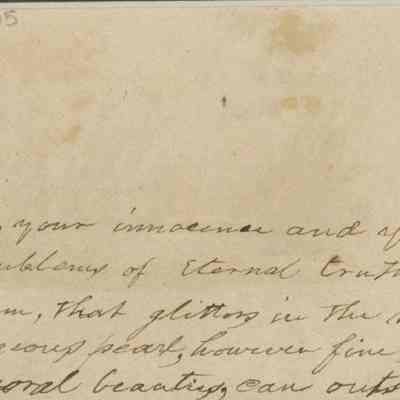 your innocence and
emblems of Eternal truth
that glitters in the
pearl, however fine
moral beauties, can outs